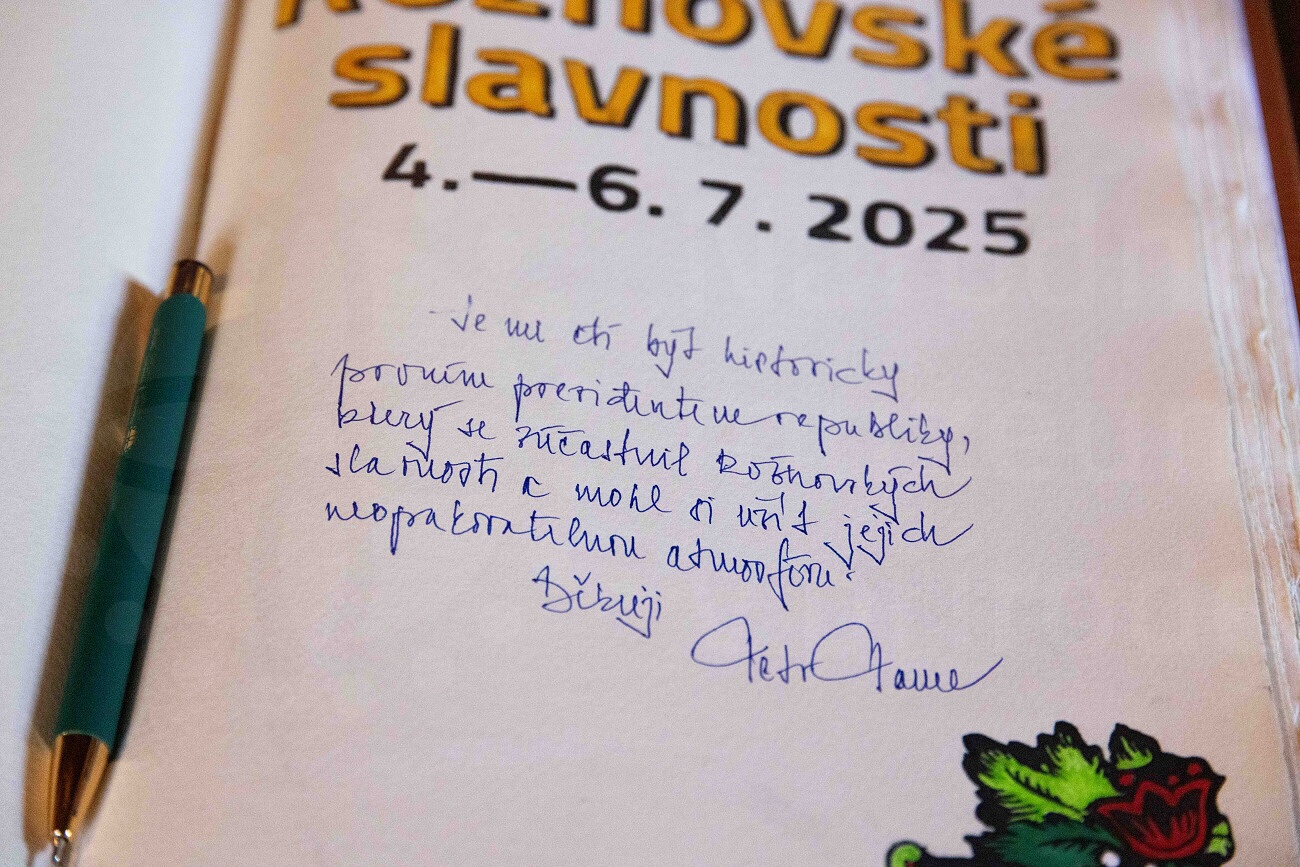 Rožnovské
slavnosti
4.—6. 7. 2025
Je mi ctí být historicky
prvním prezidentem republiky,
který se zúčastnil Rožnovských
slavností a mohl si užít jejich
neopakovatelnou atmosféru.
Děkuji
Petr Pavel